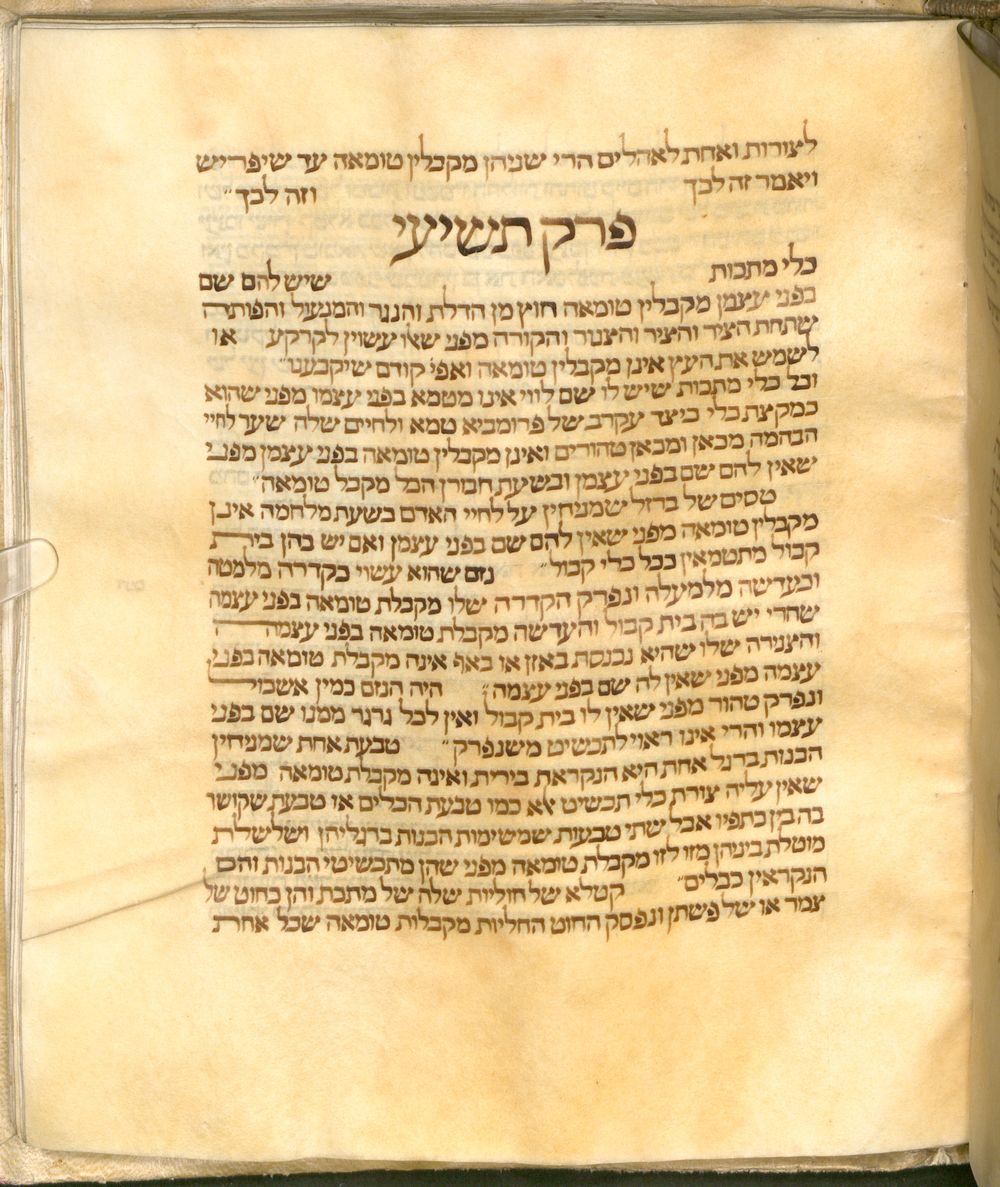 לצורות ואחת לאהלים הרי שניהן מקבלין טומאה עד שיפריש
ויאמר זה לכך וזה לכך
פרק תשיעי
כלי מתכות שיש להם שם
בפני עצמן מקבלין טומאה חוץ מן הדלת והנגר והמנעול והפותה
שתחת הציר והציר והצנור והקורה מפני שאלו עשוין לקרקע או
לשמש את העץ אינן מקבלין טומאה ואפי' קודם שיקבענו
וכל כלי מתכות שיש לו שם לווי אינו מטמא בפני עצמו מפני שהוא
כמקצת כלי כיצד עקרב של פרומביא טמא ולחיים שלה שער לחיי
הבהמה מכאן ומכאן טהורים ואינן מקבלין טומאה בפני עצמן מפני
שאין להם שם בפני עצמן ובשעת חבורן הכל מקבל טומאה
טסים של ברזל שמניחין על לחיי האדם בשעת מלחמה אינן
מקבלין טומאה מפני שאין להם שם בפני עצמן ואם יש בהן בית
קבול מתטמאין ככל כלי קבול נזם שהוא עשוי כקדרה מלמטה
וכעדשה מלמעלה ונפרק הקדרה שלו מקבלת טומאה בפני עצמה
שהרי יש בה בית קבול והעדשה מקבלת טומאה בפני עצמה
והצנירה שלו שהיא נכנסת באזן או באף אינה מקבלת טומאה בפני
עצמה מפני שאין לה שם בפני עצמה היה הנזם כמין אשכול
ונפרק טהור מפני שאין לו בית קבול ואין לכל גרגר ממנו שם בפני
עצמו והרי אינו ראוי לתכשיט משנפרק טבעת אחת שמניחין
הבנות ברגל אחת היא הנקראת בירית ואינה מקבלת טומאה מפני
שאין עליה צורת כלי תכשיט אלא כמו טבעת הכלים או טבעת שקושר
בה בין כתפיו אבל שתי טבעות שמשימות הבנות ברגליהן ושלשלת
מוטלת ביניהן מזו לזו מקבלת טומאה מפני שהן מתכשיטי הבנות והם
הנקראין כבלים קטלא של חוליות שלה של מתכת והן בחוט של
צמר או של פשתן ונפסק החוט החליות מקבלות טומאה שכל אחת